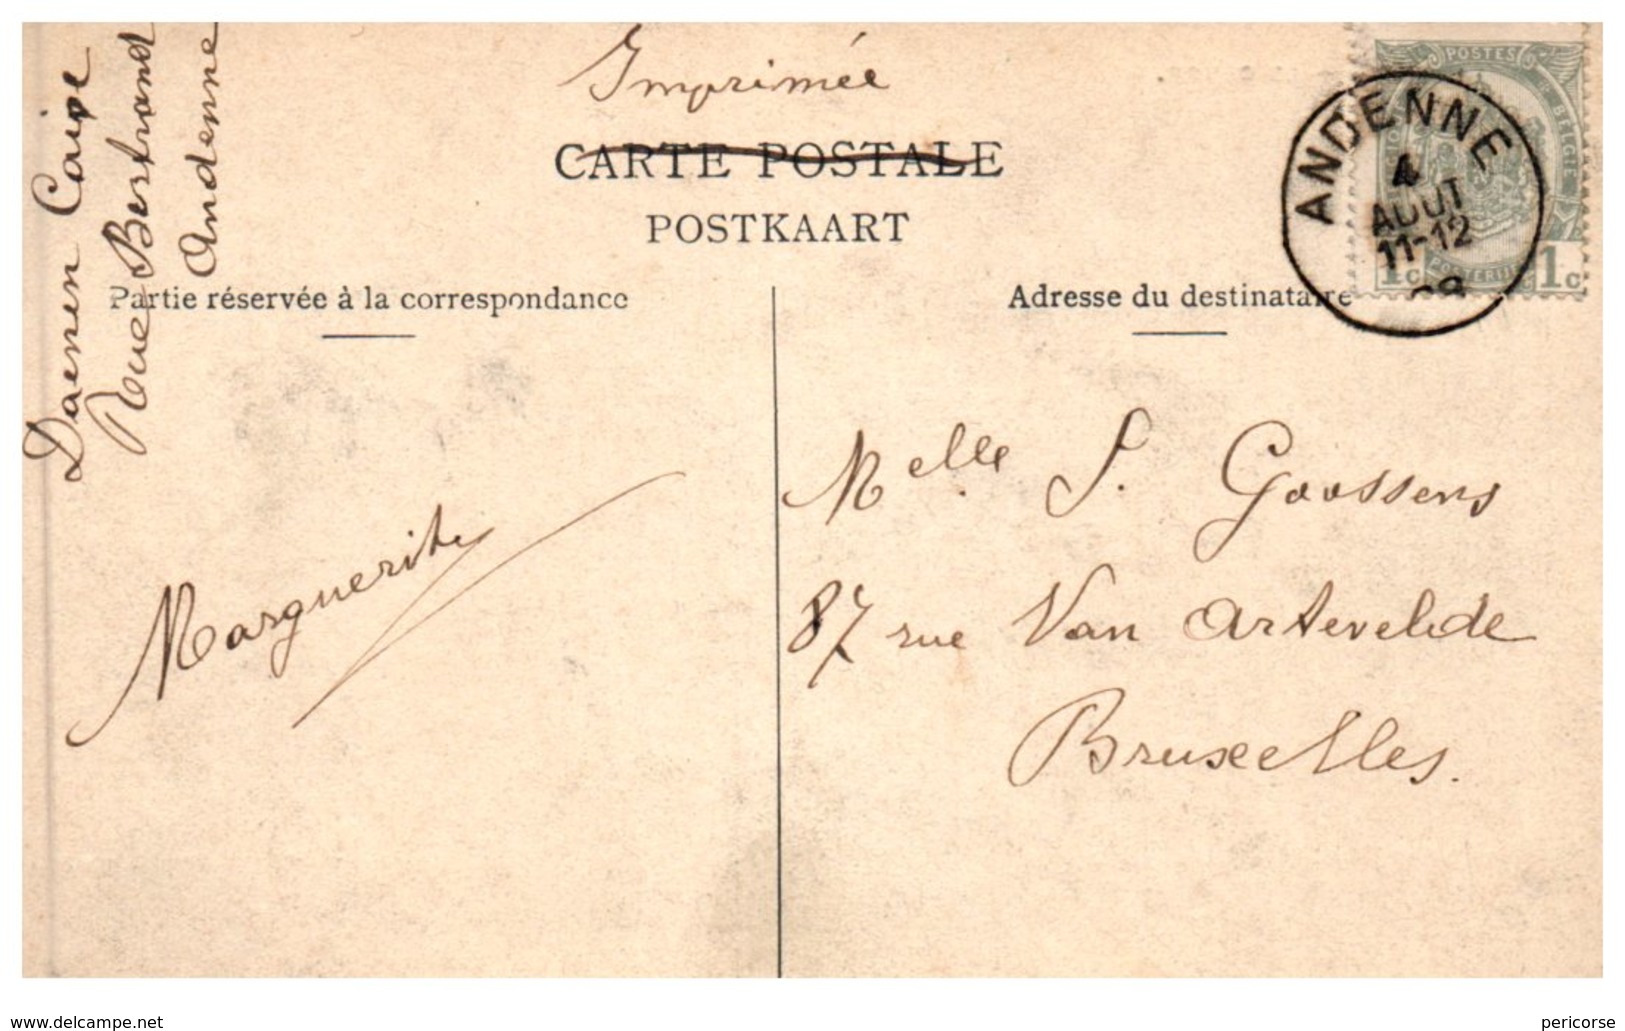 Imprimée
CARTE POSTALE
POSTKAART
Partie réservée à la correspondance
Adresse du destinataire
Daenen
Rue Bertrand
Andenne
POSTES
BELGIQUE
POSTERIJEN
1c 1c
ANDENNE
4
AOUT
11-12
08
Marguerite
Melle S. Goossens
87 rue Van Artevelde
Bruxelles.
www.delcampe.net
pericorse